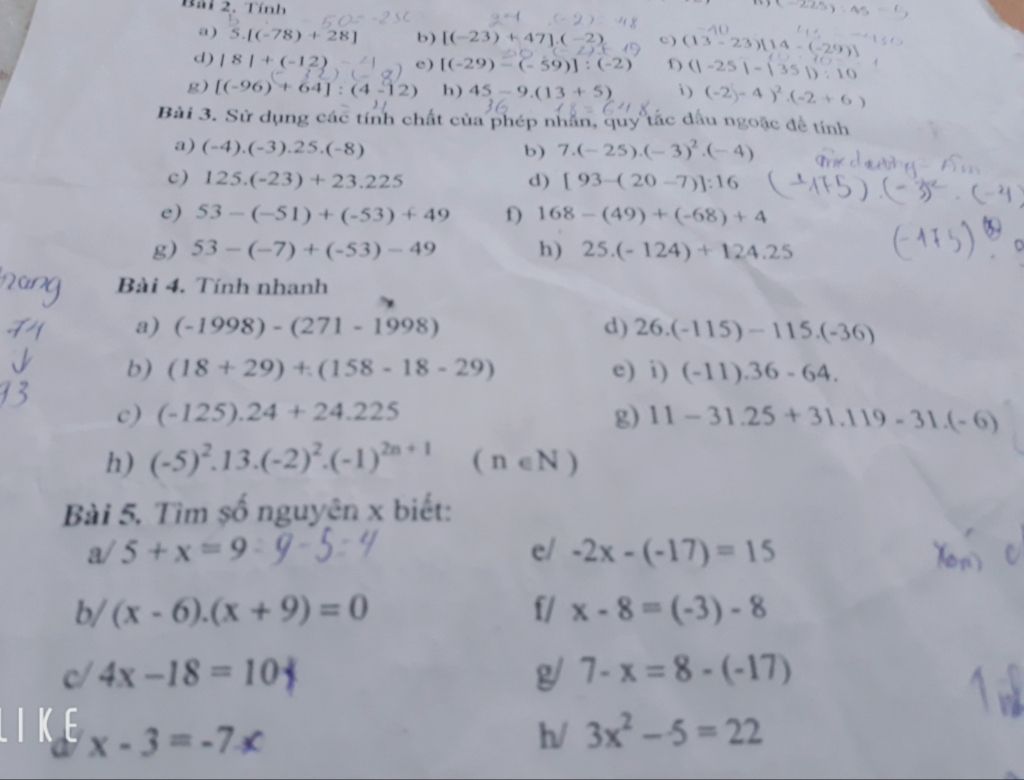 Bài 2. Tính
a) 5.[(-78) + 28] b) [(-23) + 47].(-2) c) (13 - 23)[14 - (-29)]
d) | 8 | + (-12) e) [(-29) – (- 59)] : (-2) f) (| -25 | - | 35 |) : 10
g) [(-96) + 64] : (4 -12) h) 45 – 9.(13 + 5) i) (-2 - 4 )².(-2 + 6 )
Bài 3. Sử dụng các tính chất của phép nhân, quy tắc dấu ngoặc để tính
a) (-4).(-3).25.(-8) b) 7.(- 25).(- 3)².(- 4)
c) 125.(-23) + 23.225 d) [ 93 –( 20 –7)]:16
(-175).(-3)².(-4)
e) 53 – (–51) + (-53) + 49 f) 168 – (49) + (-68) + 4
g) 53 – (–7) + (-53) – 49 h) 25.(- 124) + 124.25
(-175)
Bài 4. Tính nhanh
74
93
a) (-1998) - (271 - 1998) d) 26.(-115) – 115.(-36)
b) (18 + 29) + (158 - 18 - 29) e) i) (-11).36 - 64.
c) (-125).24 + 24.225 g) 11 – 31.25 + 31.119 - 31.(- 6)
h) (-5)².13.(-2)².(-1)²ⁿ ⁺ ¹ ( n ∈ N )
Bài 5. Tìm số nguyên x biết:
a/ 5 + x = 9 = 9 - 5 = 4 e/ -2x - (-17) = 15
b/ (x - 6).(x + 9) = 0 f/ x - 8 = (-3) - 8
c/ 4x –18 = 10 g/ 7- x = 8 - (-17)
LIKE
d/ x - 3 = -7 h/ 3x² – 5 = 22